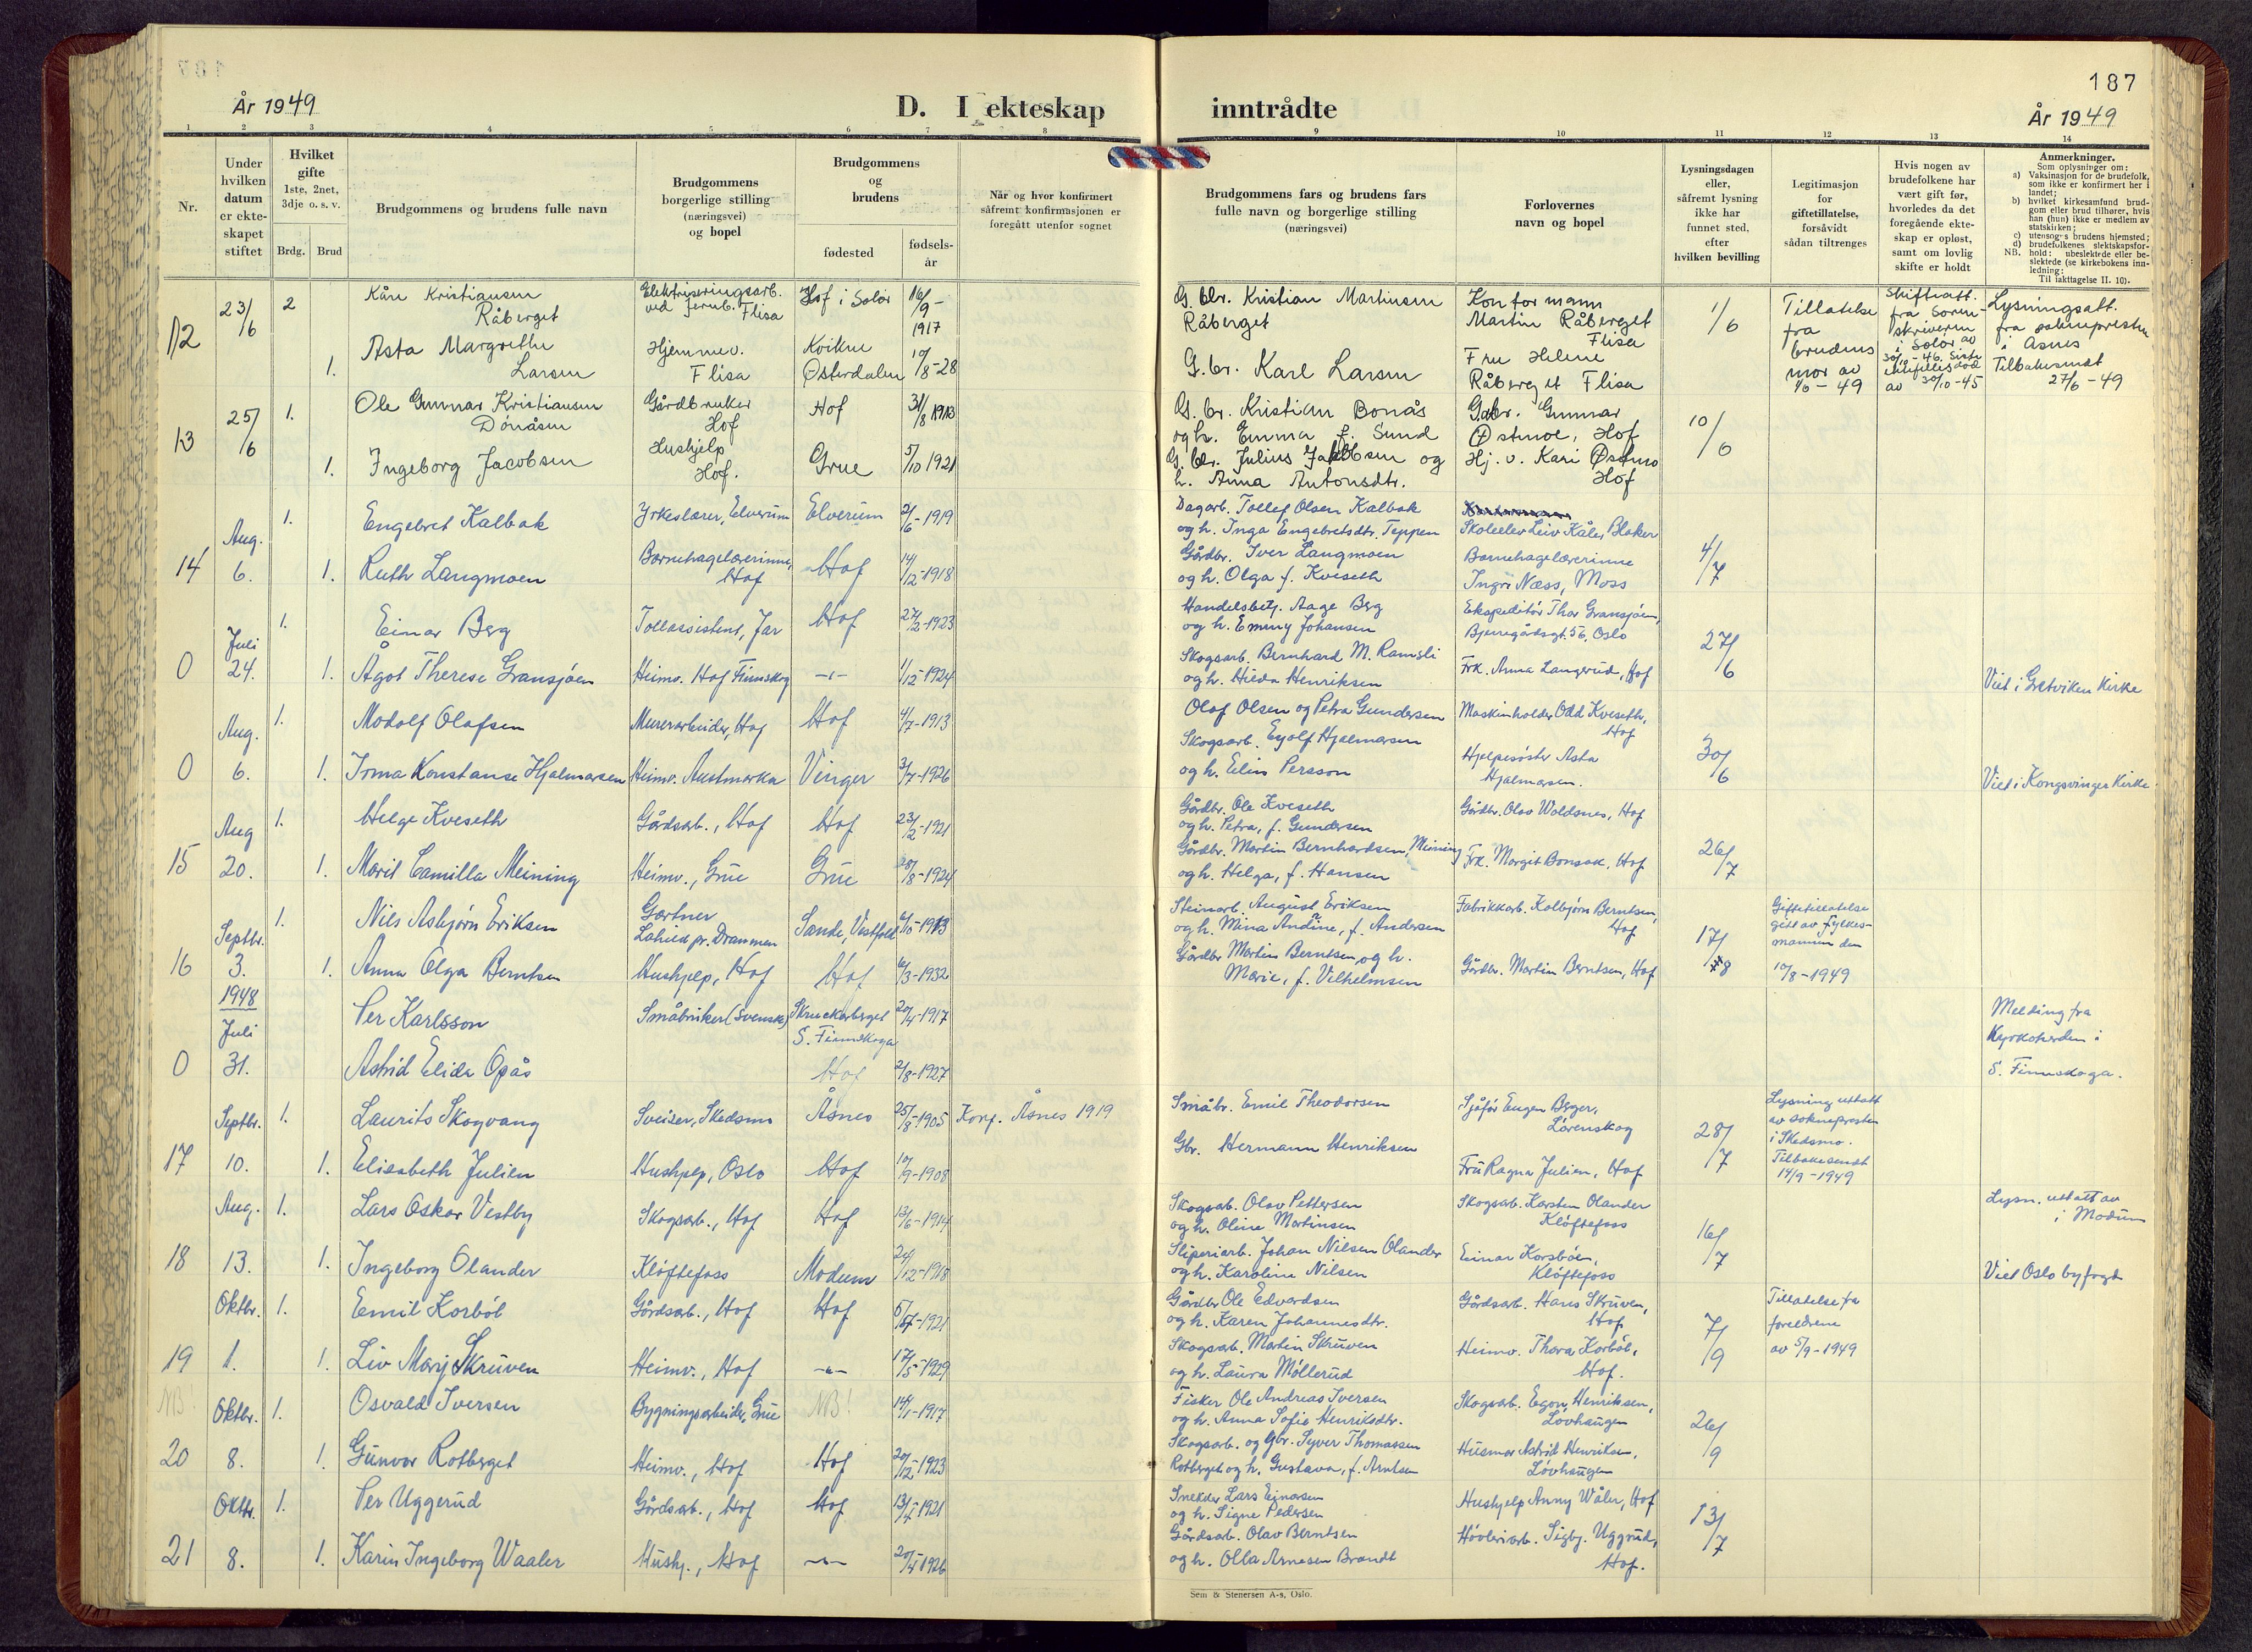 187
År 1949
D. I ekteskap
inntrådte
År 1949
1 2 3 4 5 6 7 8 9 10 11 12 13 14
Nr.
Under
hvilken
datum
er ekte-
skapet
stiftet
Hvilket
gifte
1ste, 2net,
3dje o. s. v.
Brdg. Brud
Brudgommens og brudens fulle navn
Brudgommens
borgerlige stilling
(næringsvei)
og bopel
Brudgommens
og
brudens
fødested
fødsels-
år
Når og hvor konfirmert
såfremt konfirmasjonen er
foregått utenfor sognet
Brudgommens fars og brudens fars
fulle navn og borgerlige stilling
(næringsvei)
Forlovernes
navn og bopel
Lysningsdagen
eller,
såfremt lysning
ikke har
funnet sted,
efter
hvilken bevilling
Legitimasjon
for
giftetillatelse,
forsåvidt
sådan tiltrenges
Hvis nogen av
brudefolkene har
vært gift før,
hvorledes da det
foregående ekte-
skap er opløst,
samt om lovlig
skifte er holdt
Anmerkninger.
Som oplysninger om:
a) Vaksinasjon for de brudefolk,
som ikke er konfirmert her i
landet;
b) hvilket kirkesamfund brud-
gom eller brud tilhører, hvis
han (hun) ikke er medlem av
statskirken;
c) utensogns brudens hjemsted;
d) brudefolkenes slektskapsfor-
hold: ubeslektede eller be-
slektede (se kirkebokens inn-
ledning:
NB.
Til iakttagelse II. 10).
12
23/6
2
Kåre Kristiansen
Råberget
Elektriseringsarb.
ved jernb. Flisa
Hof i Solør
16/9-
1917
G. br. Kristian Martinsen
Råberget
Kontormann
Martin Råberget
Flisa
1/6
Tillatelse
fra
brudens
mor av
1/6 - 49
Skifteatt.
fra Soren-
skriveren
i Solør av
Lysningsatt.
fra soknepresten
i Åsnes
Tilbakesendt
27/6 - 49
1.
Asta Margrethe
Larsen
Hjemmev.
Flisa
Kvikne
Østerdalen
10/8-28
G. br. Karl Larsen
Fru Helene
Råberget Flisa
13
25/6
1.
Ole Gunnar Kristiansen
Bonåsen
Gårdbruker
Hof
Hof
31/8 1913
G. br. Kristian Bonås
og h. Emma f. Sund
G.br. Gunnar
Østmoe, Hof
10/6
1.
Ingeborg Jacobsen
Hushjelp
Hof.
Grue
5/10 1921
G. br. Julius Jakobsen og
h. Anna Antonsdtr.
Hj. v. Kari Østmo
Hof
14
Aug.
6.
1.
Engebret Kalbak
Yrkeslærer, Elverum
Elverum
2/6-1919
Dagarb. Tollef Olsen Kalbak
og h. Inga Engebretsdtr. Teppen
Skoleelev Leiv Kåles, Blaker
4/7
1.
Ruth Langmoen
Barnehagelærerinne,
Hof
Hof
14/12-1918
Gårdbr. Iver Langmoen
og h. Olga f. Kveseth
Barnehagelærerinne
Ingri Næss, Moss
0
Juli
24.
1.
Einar Berg
Tollassistent, Jar
Hof
27/2-1923
Handelsbetj. Aage Berg
og h. Emmy Johansen
Ekspeditør Thor Gransjøen,
Bjerregårdsgt. 56, Oslo
27/6
1.
Ågot Therese Gransjøen
Heimv. Hof Finnskog
-"-
1/12-1924
Skogsarb. Bernhard M. Ramsli
og h. Hilda Henriksen
Frk. Anna Langerud, Hof
Viet i Gretviken Kirke
0
Aug.
6.
1.
Modolf Olafsen
Murerarbeider, Hof
Hof
4/7-1913
Olaf Olsen og Petra Gundersen
Maskinholder Odd Kveseth,
Hof
30/6
1.
Irma Konstanse Hjalmarsen
Heimv. Austmarka
Vinger
3/7-1926
Skogsarb. Eyolf Hjalmarsen
og h. Elin Persson
Hjelpesøster Asta
Hjalmarsen.
Viet i Kongsvinger Kirke
15
Aug
20.
1.
Helge Kveseth
Gårdsarb., Hof
Hof
23/2-1921
Gårdbr. Ole Kveseth
og h. Petra, f. Gundersen
Gårdbr. Olav Woldsnes, Hof
26/7
1.
Marit Camilla Meining
Heimv., Grue
Grue
28/8-1924
Gårdbr. Martin Bernhardsen, Meining
og h. Helga, f. Hansen
Frk. Margit Bonsak, Hof
16
Septbr.
3.
1.
Nils Asbjørn Eriksen
Gartner
Lahied pr. Drammen
Sande, Vestfold
6/10-1913
Steinarb. August Eriksen
og h. Mina Andine, f. Andersen
Fabrikkarb. Kolbjørn Berntsen,
Hof
17/8
Giftetillatelse
gitt av fylkes-
mannen den
10/8-1949
1.
Anna Olga Berntsen
Hushjelp, Hof
Hof
6/3-1932
Gårdbr Martin Berntsen, og h.
Marie, f. Vilhelmsen
Gårdbr. Martin Berntsen, Hof
0
1948
Juli
31.
Per Karlsson
Småbruker (Svensk)
Skruckarberget
S. Finnskoga
20/4-1917
Melding fra
Kyrkoherden i
S. Finnskoga.
Astrid Elida Opås
Hof
2/8-1927
17
Septbr.
10.
1.
Laurits Skogvang
Sveiser, Skedsmo
Åsnes
25/8-1905
Konf. Åsnes 1919
Småbr. Emil Theodorsen
Sjåfør Eugen Berger,
Lørenskog
28/7
Lysning uttatt
av soknepresten
i Skedsmo.
Tilbakesendt
14/9-1949
1.
Elisabeth Julien
Hushjelp, Oslo
Hof
10/9-1908
Gbr. Hermann Henriksen
Fru Ragna Julien, Hof
18
Aug.
13.
1.
Lars Oskar Vestby
Skogsarb., Hof
Hof
13/6-1914
Skogsarb. Olav Pettersen
og h. Oline Martinsen
Skogsarb. Karsten Olander
Kløftefoss
16/7
Lysn. uttatt av
i Modum
1.
Ingeborg Olander
Kløftefoss
Modum
24/12-1918
Sliperiarb. Johan Nilsen Olander
og h. Karoline Nilsen
Einar Korsbøen,
Kløftefoss
Viet Oslo byfogd
19
Oktbr.
1.
1.
Emil Korbøl
Gårdsarb., Hof
Hof
Gårdbr Ole Edvardsen
og h. Karen Johannesdtr.
Gårdsarb. Hans Skruven,
Hof
7/9
Tillatelse fra
foreldrene
av 5/9-1949
1.
Liv Marj Skruven
Heimv., Hof
-"-
17/5-1929
Skogsarb. Martin Skruven
og h. Laura Møllerud
Heimv. Thora Korbøl,
Hof.
NB!
20
Oktbr.
8.
1.
Osvald Iversen
Bygningsarbeider, Grue
NB!
14/1-1917
Fisker Ole Andreas Iversen
og h. Anna Sofie Henriksdtr.
Skogsarb. Egon Henriksen,
Lovhaugen
26/9
1.
Gunvor Rotberget
Heimv., Hof
Hof
20/12-1923
Skogsarb. og Gbr. Syver Thomassen
Rotberget og h. Gustava, f. Arntsen
Husmor Astrid Henriksen,
Løvhaugen
21
Oktbr.
8.
1.
Per Uggerud
Gårdsarb., Hof
Hof
Snekker Lars Einarsen
og h. Signe Pedersen
Hushjelp Anny Wåler, Hof
13/7
1.
Karin Ingeborg Waaler
Hushj., Hof
-"-
Gårdsarb. Olav Berntsen
og h. Olla Arnesen Brandt
Høvleriarb. Sigbj. Uggrud,
Hof.
Sem & Stenersen A-s, Oslo.